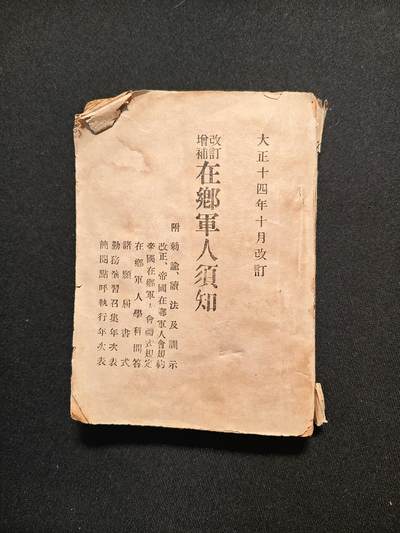 大正十四年十月改訂
改訂
増補
在鄕軍人須知
附勅諭、讀法及訓示
改正、帝國在鄕軍人會規約
帝國在鄕軍人會儀式規定
在鄕軍人學科問答
諸願屆書式
勤務演習召集年次表
簡閲點呼執行年次表